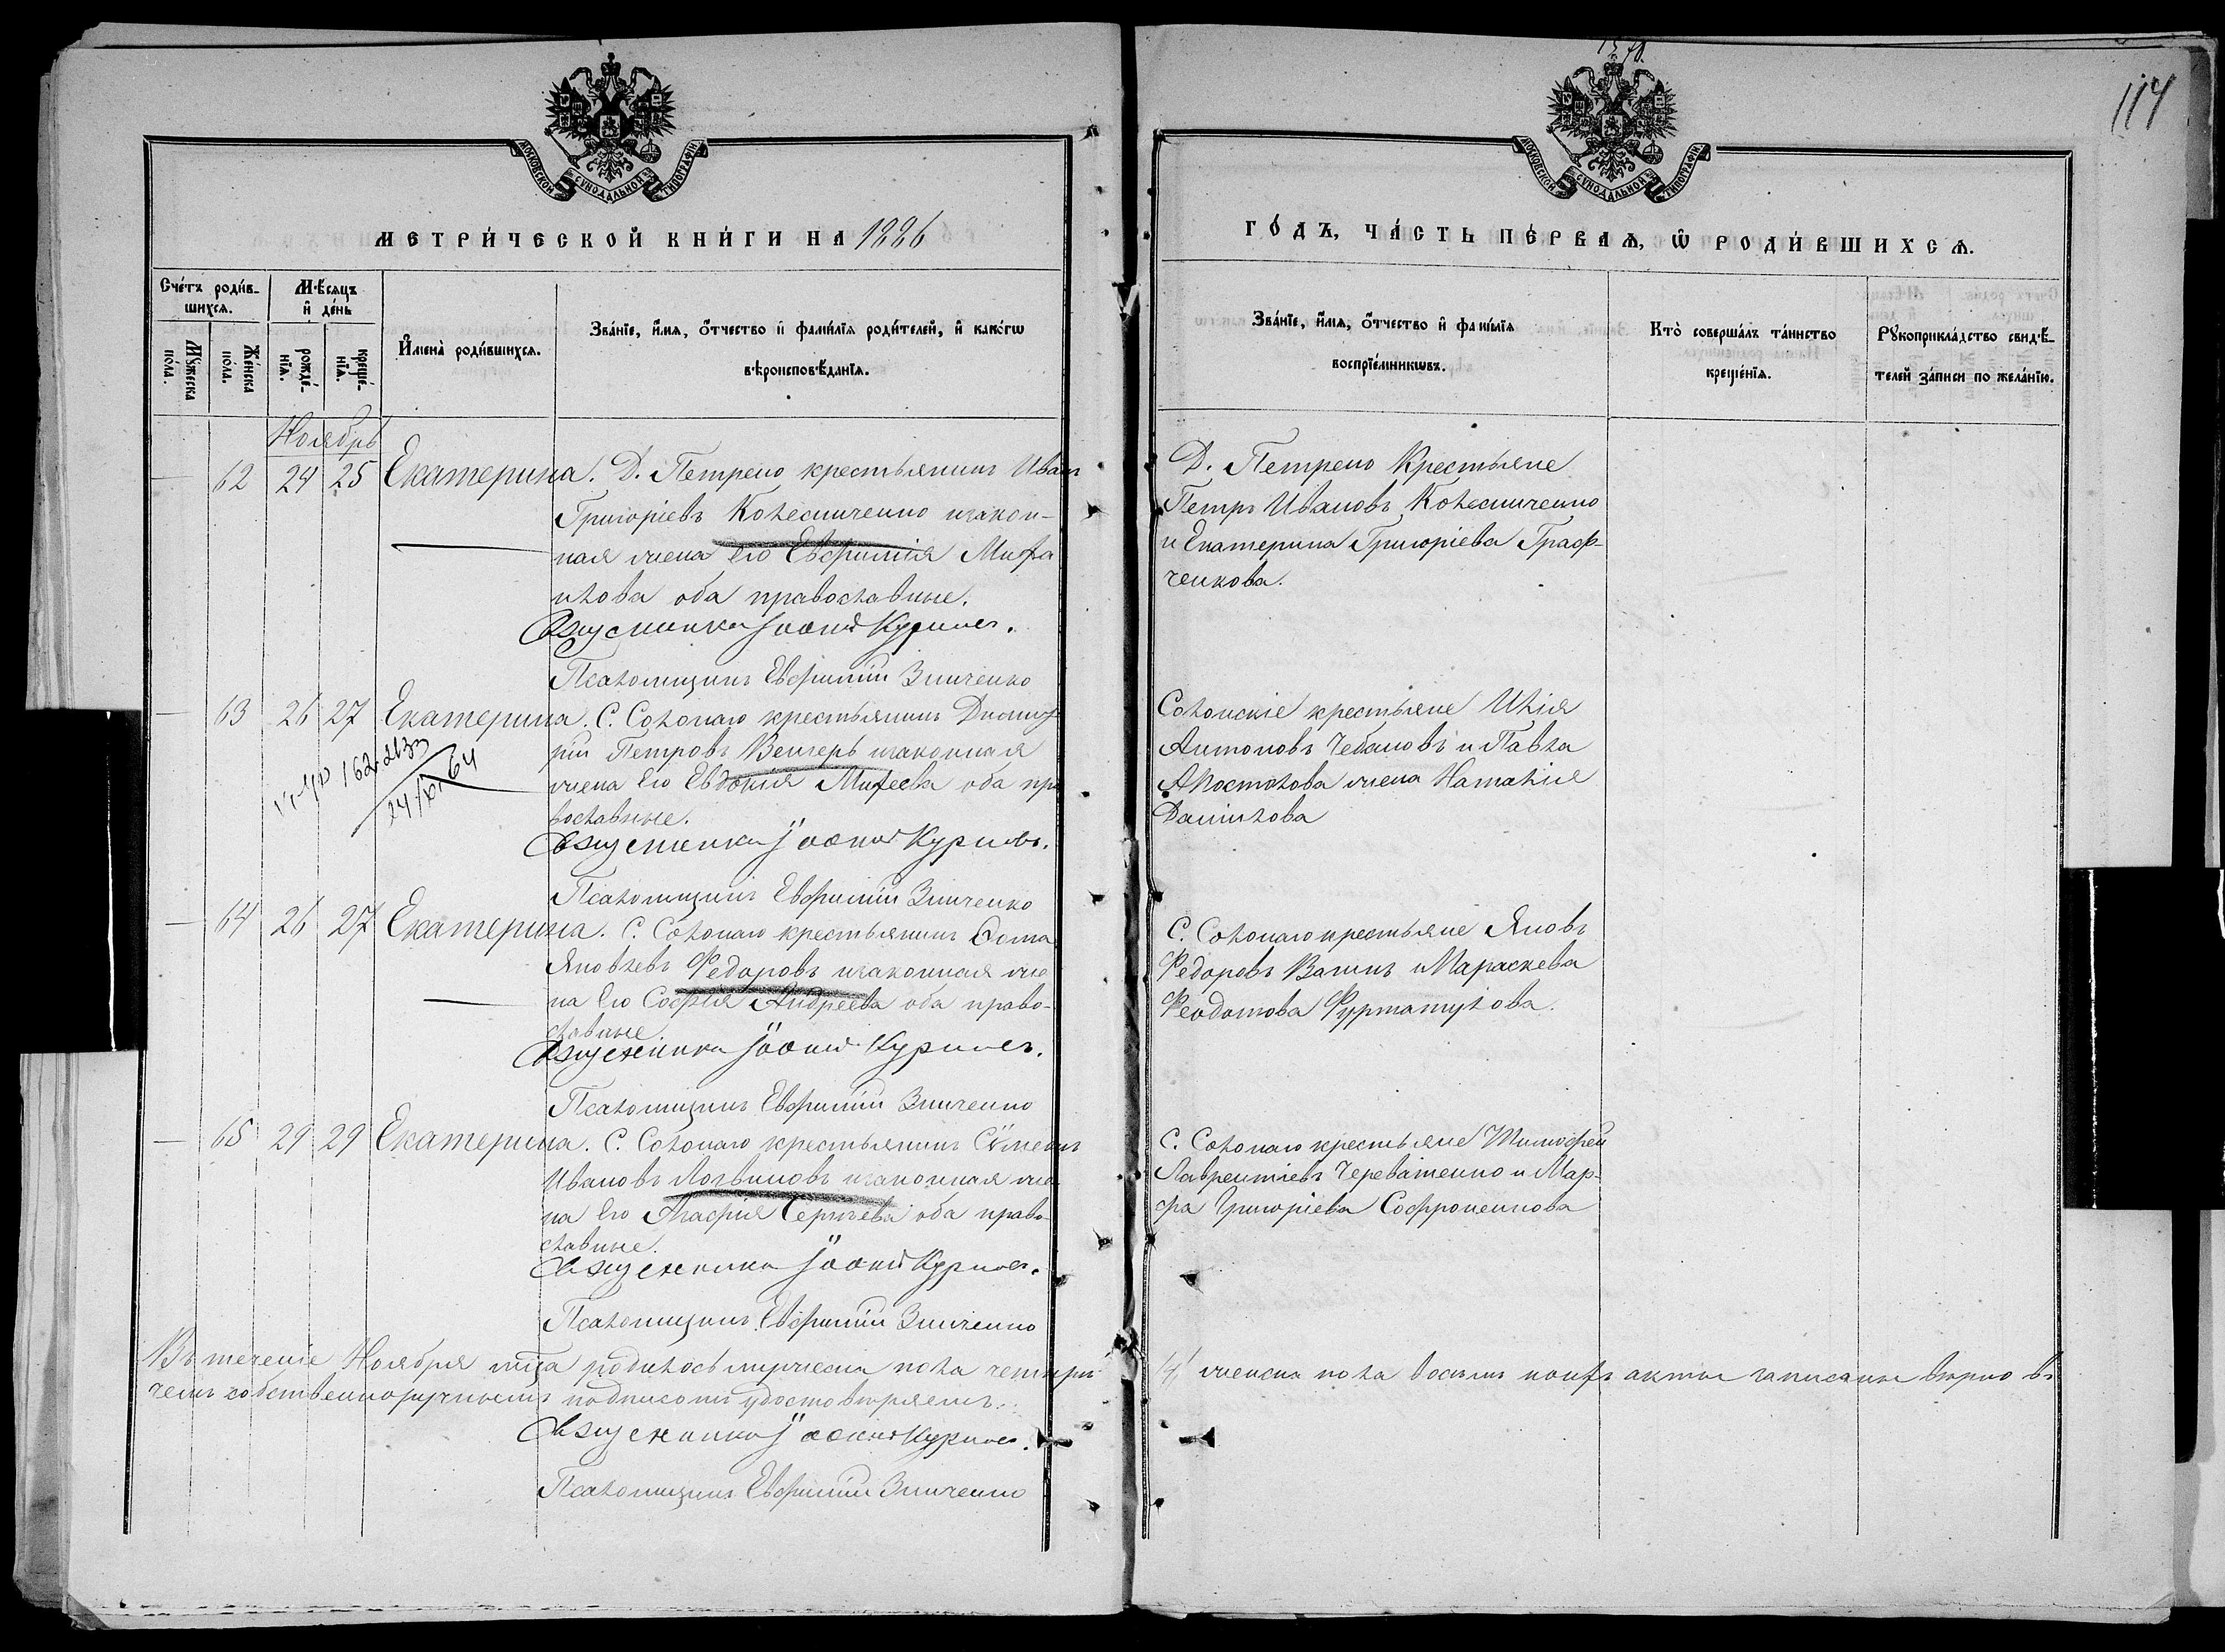 114
МОСКОВСКОЙ СѴНОДАЛЬНОЙ ТИПОГРАФІИ
МЕТРИ́ЧЕСКОЙ КНИ́ГИ НА 1886
Сче́тъ роди́в-
шихсѧ.
Мѣ́сѧцъ
и҆ де́нь
Мꙋ́жеска
по́ла.
Же́нска
по́ла.
рожде́-
нїѧ.
креще́-
нїѧ.
И҆мена̀ роди́вшихсѧ.
Зва́нїе, и҆́мѧ, ѻ҆́тчество и҆ фами́лїѧ роди́телей, и҆ како́гѡ
вѣроисповѣ́данїѧ.
Ноябрь
62 24 25 Екатерина. Д. Петрено крестьянинъ Иванъ
Григоріевъ Колесниченко и закон-
ная жена его Евфимія Миха
илова оба православные.
Священникъ Іоаннъ Куриловъ.
Псаломщикъ Евфимій Зинченко
63 26 27 Екатерина. С. Солонаго крестьянинъ Димит-
рій Петровъ Венгеръ и законная
жена его Евдокія Михеева оба пра
вославные.
24/XI 64
Священникъ Іоаннъ Куриловъ.
Псаломщикъ Евфимій Зинченко
64 26 27 Екатерина. С. Солонаго крестьянинъ Ѳома
Яковлевъ Федоровъ и законная же
на его Софія Андреева оба право-
славные.
Священникъ Іоаннъ Куриловъ.
Псаломщикъ Евфимій Зинченко
65 29 29 Екатерина. С. Солонаго крестьянинъ Сѵмеонъ
Ивановъ Логвиновъ и законная же
на его Агафія Сергіева оба право-
славные.
Священникъ Іоаннъ Куриловъ.
Псаломщикъ Евфимій Зинченко
Въ теченіе Ноября мца родилось мужеска пола четыри
чемъ собственноручнымъ подписомъ удостовѣряемъ.
Священникъ Іоаннъ Куриловъ.
Псаломщикъ Евфимій Зинченко
МОСКОВСКОЙ СѴНОДАЛЬНОЙ ТИПОГРАФІИ
ГО́ДЪ, ЧА́СТЬ ПЕ́РВАѦ, Ѡ҆ РОДИ́ВШИХСѦ.
Зва́нїе, и҆́мѧ, ѻ҆́тчество и҆ фами́лїѧ
воспрїе́мникѡвъ.
Кто̀ соверша́лъ та́инство
креще́нїѧ.
Рꙋкоприкла́дство свидѣ́-
телей за́писи по жела́нїю.
Д. Петрено Крестьяне
Петръ Ивановъ Колесниченко
и Екатерина Григоріева Граф-
ченкова.
Солонскіе крестьяне Илія
Антоновъ Чебановъ и Павла
Апостолова жена Наталія
Даніилова
С. Солонаго крестьяне Яковъ
Федоровъ Ванинъ и Параскева
Феодотова Фуртатулова.
С. Солонаго крестьяне Тимофей
Лаврентіевъ Череватенко и Мар-
фа Григоріева Софроненкова
4, женска пола восемь коихъ акты записаны вѣрно въ